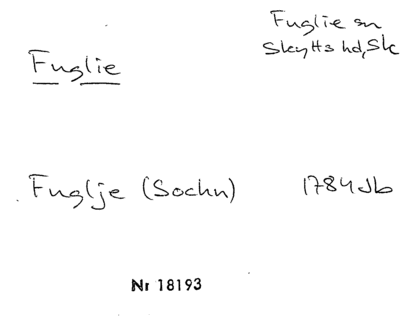 Fuglie
Fuglie sn
Skytts hd, Sk
Fuglje (Sochn) 1784 Jb
Nr 18193